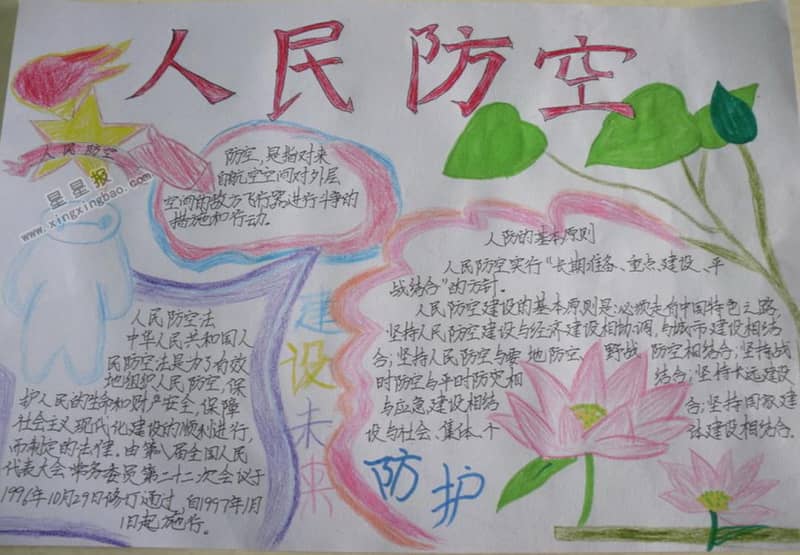 人民防空
人民防空
星星报
www.xingxingbao.com
防空,是指对来
自航空空间对外层
空间的敌方飞行器进行斗争的
措施和行动。
人防的基本原则
人民防空实行“长期准备、重点建设、平
战结合”的方针。
人民防空建设的基本原则是:必须走有中国特色之路,
坚持人民防空建设与经济建设相协调,与城市建设相结
合;坚持人民防空与要地防空、野战防空相结合;坚持战
时防空与平时防灾相结合;坚持长远建设
与应急建设相结合;坚持国家建
设与社会、集体、个体建设相结合。
人民防空法
中华人民共和国人
民防空法是为了有效
地组织人民防空,保
护人民的生命和财产安全,保障
社会主义现代化建设的顺利进行,
而制定的法律。由第八届全国人民
代表大会常务委员第二十二次会议于
1996年10月29日修订通过,自1997年1月
1日起施行。
建设未来
防护